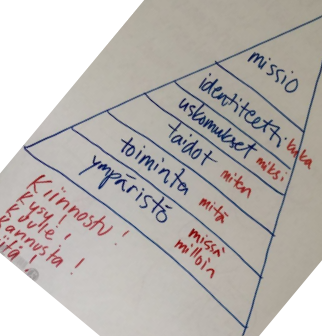 missio
identiteetti kuka
uskomukset miksi
taidot miten
toiminta mitä
ympäristö missä
milloin
Kiinnostu!
Kysy!
Kuule!
kannusta!